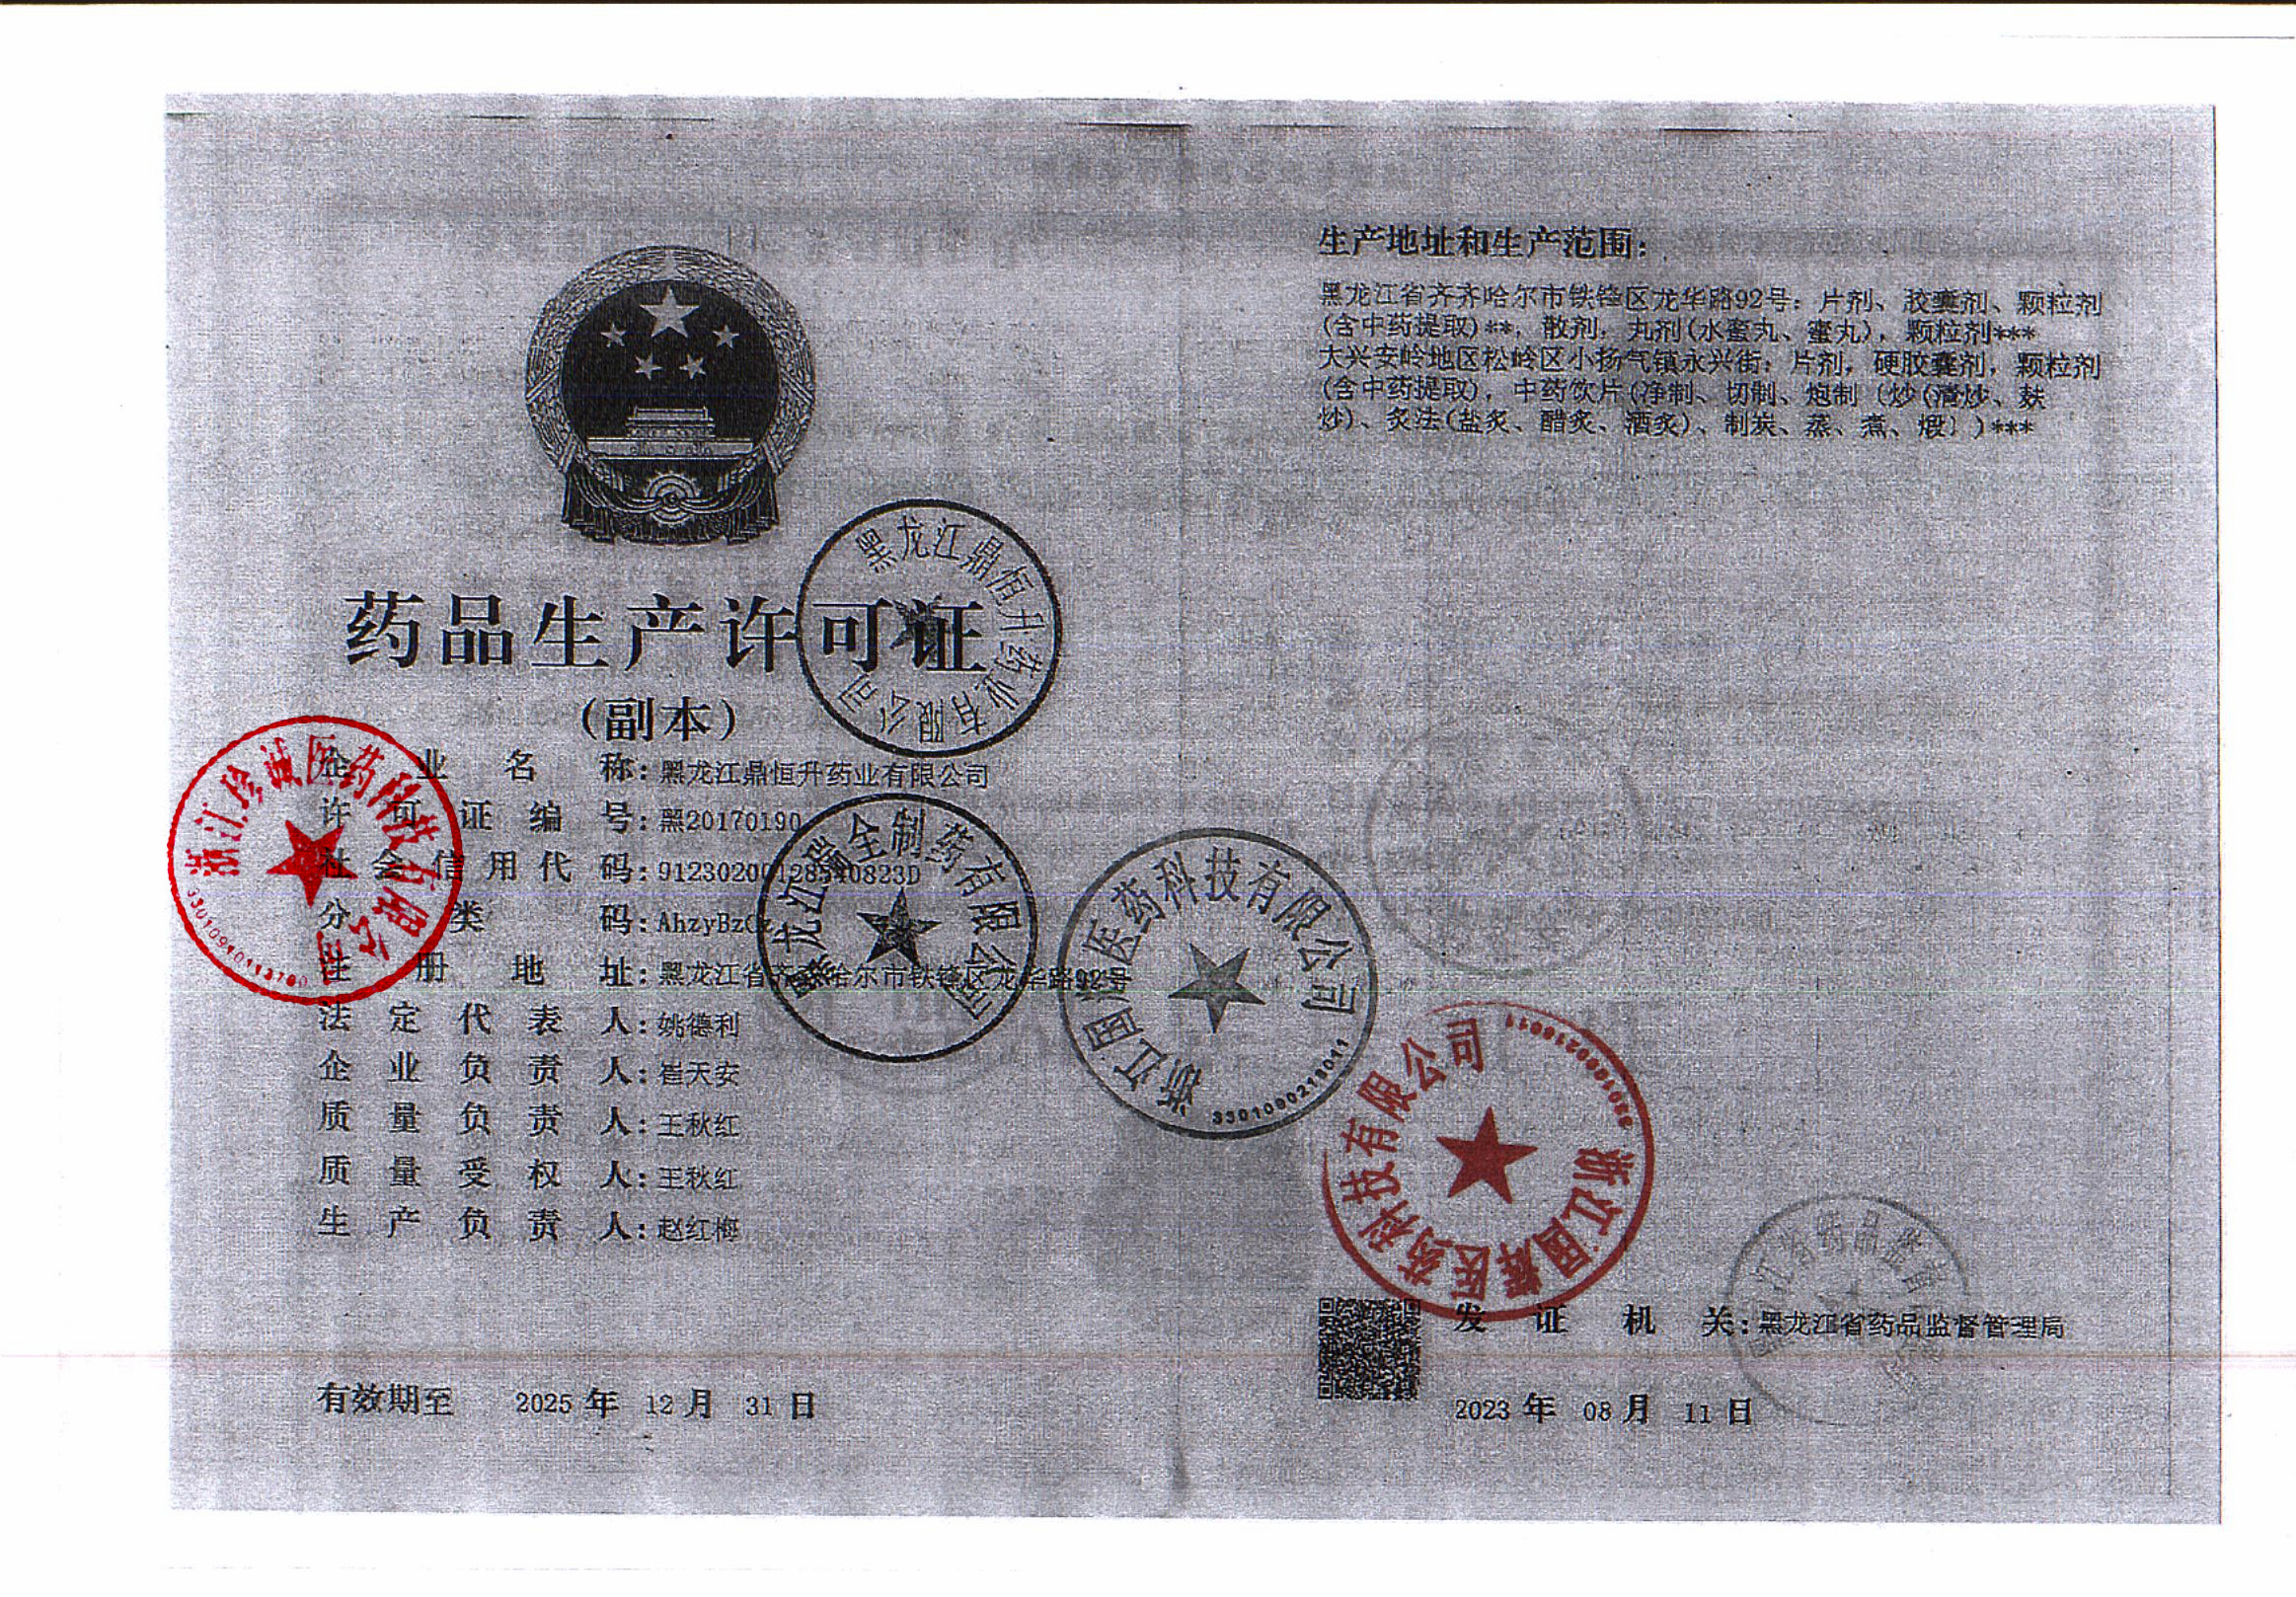 药品生产许可证
(副本)
企业名称:黑龙江鼎恒升药业有限公司
许可证编号:黑20170190
社会信用代码:91230200128540823D
分类码:AhzyBzCz
注册地址:黑龙江省齐齐哈尔市铁锋区龙华路92号
法定代表人:姚德利
企业负责人:崔天安
质量负责人:王秋红
质量受权人:王秋红
生产负责人:赵红梅
有效期至 2025年 12月 31日
生产地址和生产范围:
黑龙江省齐齐哈尔市铁锋区龙华路92号: 片剂、胶囊剂、颗粒剂
(含中药提取)**, 散剂, 丸剂(水蜜丸、蜜丸), 颗粒剂***
大兴安岭地区松岭区小扬气镇永兴街: 片剂, 硬胶囊剂, 颗粒剂
(含中药提取), 中药饮片(净制、切制、炮制〔炒(清炒、麸
炒)、炙法(盐炙、醋炙、酒炙)、制炭、蒸、煮、煅〕)***
发证机关:黑龙江省药品监督管理局
2023年 08月 11日
黑龙江鼎恒升药业有限公司
浙江珍诚医药科技有限公司
黑龙江瑞全制药有限公司
浙江国海医药科技有限公司
浙江国辉医药科技有限公司